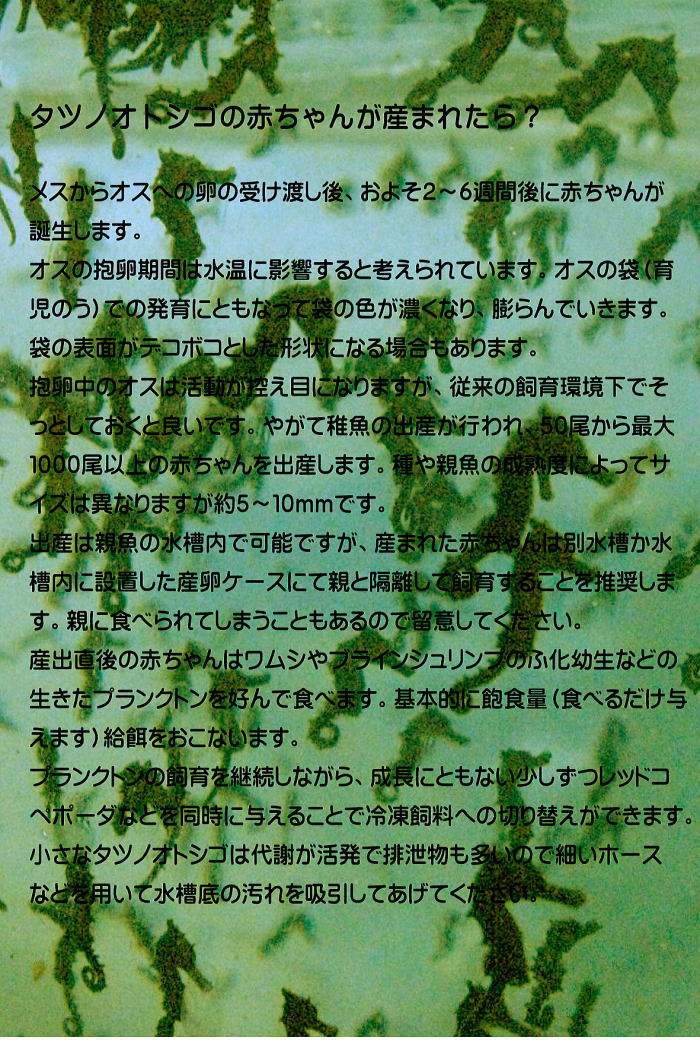 タツノオトシゴの赤ちゃんが産まれたら？
メスからオスへの卵の受け渡し後、およそ2～6週間後に赤ちゃんが
誕生します。
オスの抱卵期間は水温に影響すると考えられています。オスの袋（育
児のう）での発育にともなって袋の色が濃くなり、膨らんでいきます。
袋の表面がデコボコとした形状になる場合もあります。
抱卵中のオスは活動が控え目になりますが、従来の飼育環境下でそ
っとしておくと良いです。やがて稚魚の出産が行われ、50尾から最大
1000尾以上の赤ちゃんを出産します。種や親魚の成熟度によってサ
イズは異なりますが約5～10mmです。
出産は親魚の水槽内で可能ですが、産まれた赤ちゃんは別水槽か水
槽内に設置した産卵ケースにて親と隔離して飼育することを推奨しま
す。親に食べられてしまうこともあるので留意してください。
産出直後の赤ちゃんはワムシやブラインシュリンプのふ化幼生などの
生きたプランクトンを好んで食べます。基本的に飽食量（食べるだけ与
えます）給餌をおこないます。
プランクトンの飼育を継続しながら、成長にともない少しずつレッドコ
ペポーダなどを同時に与えることで冷凍飼料への切り替えができます。
小さなタツノオトシゴは代謝が活発で排泄物も多いので細いホース
などを用いて水槽底の汚れを吸引してあげてください。